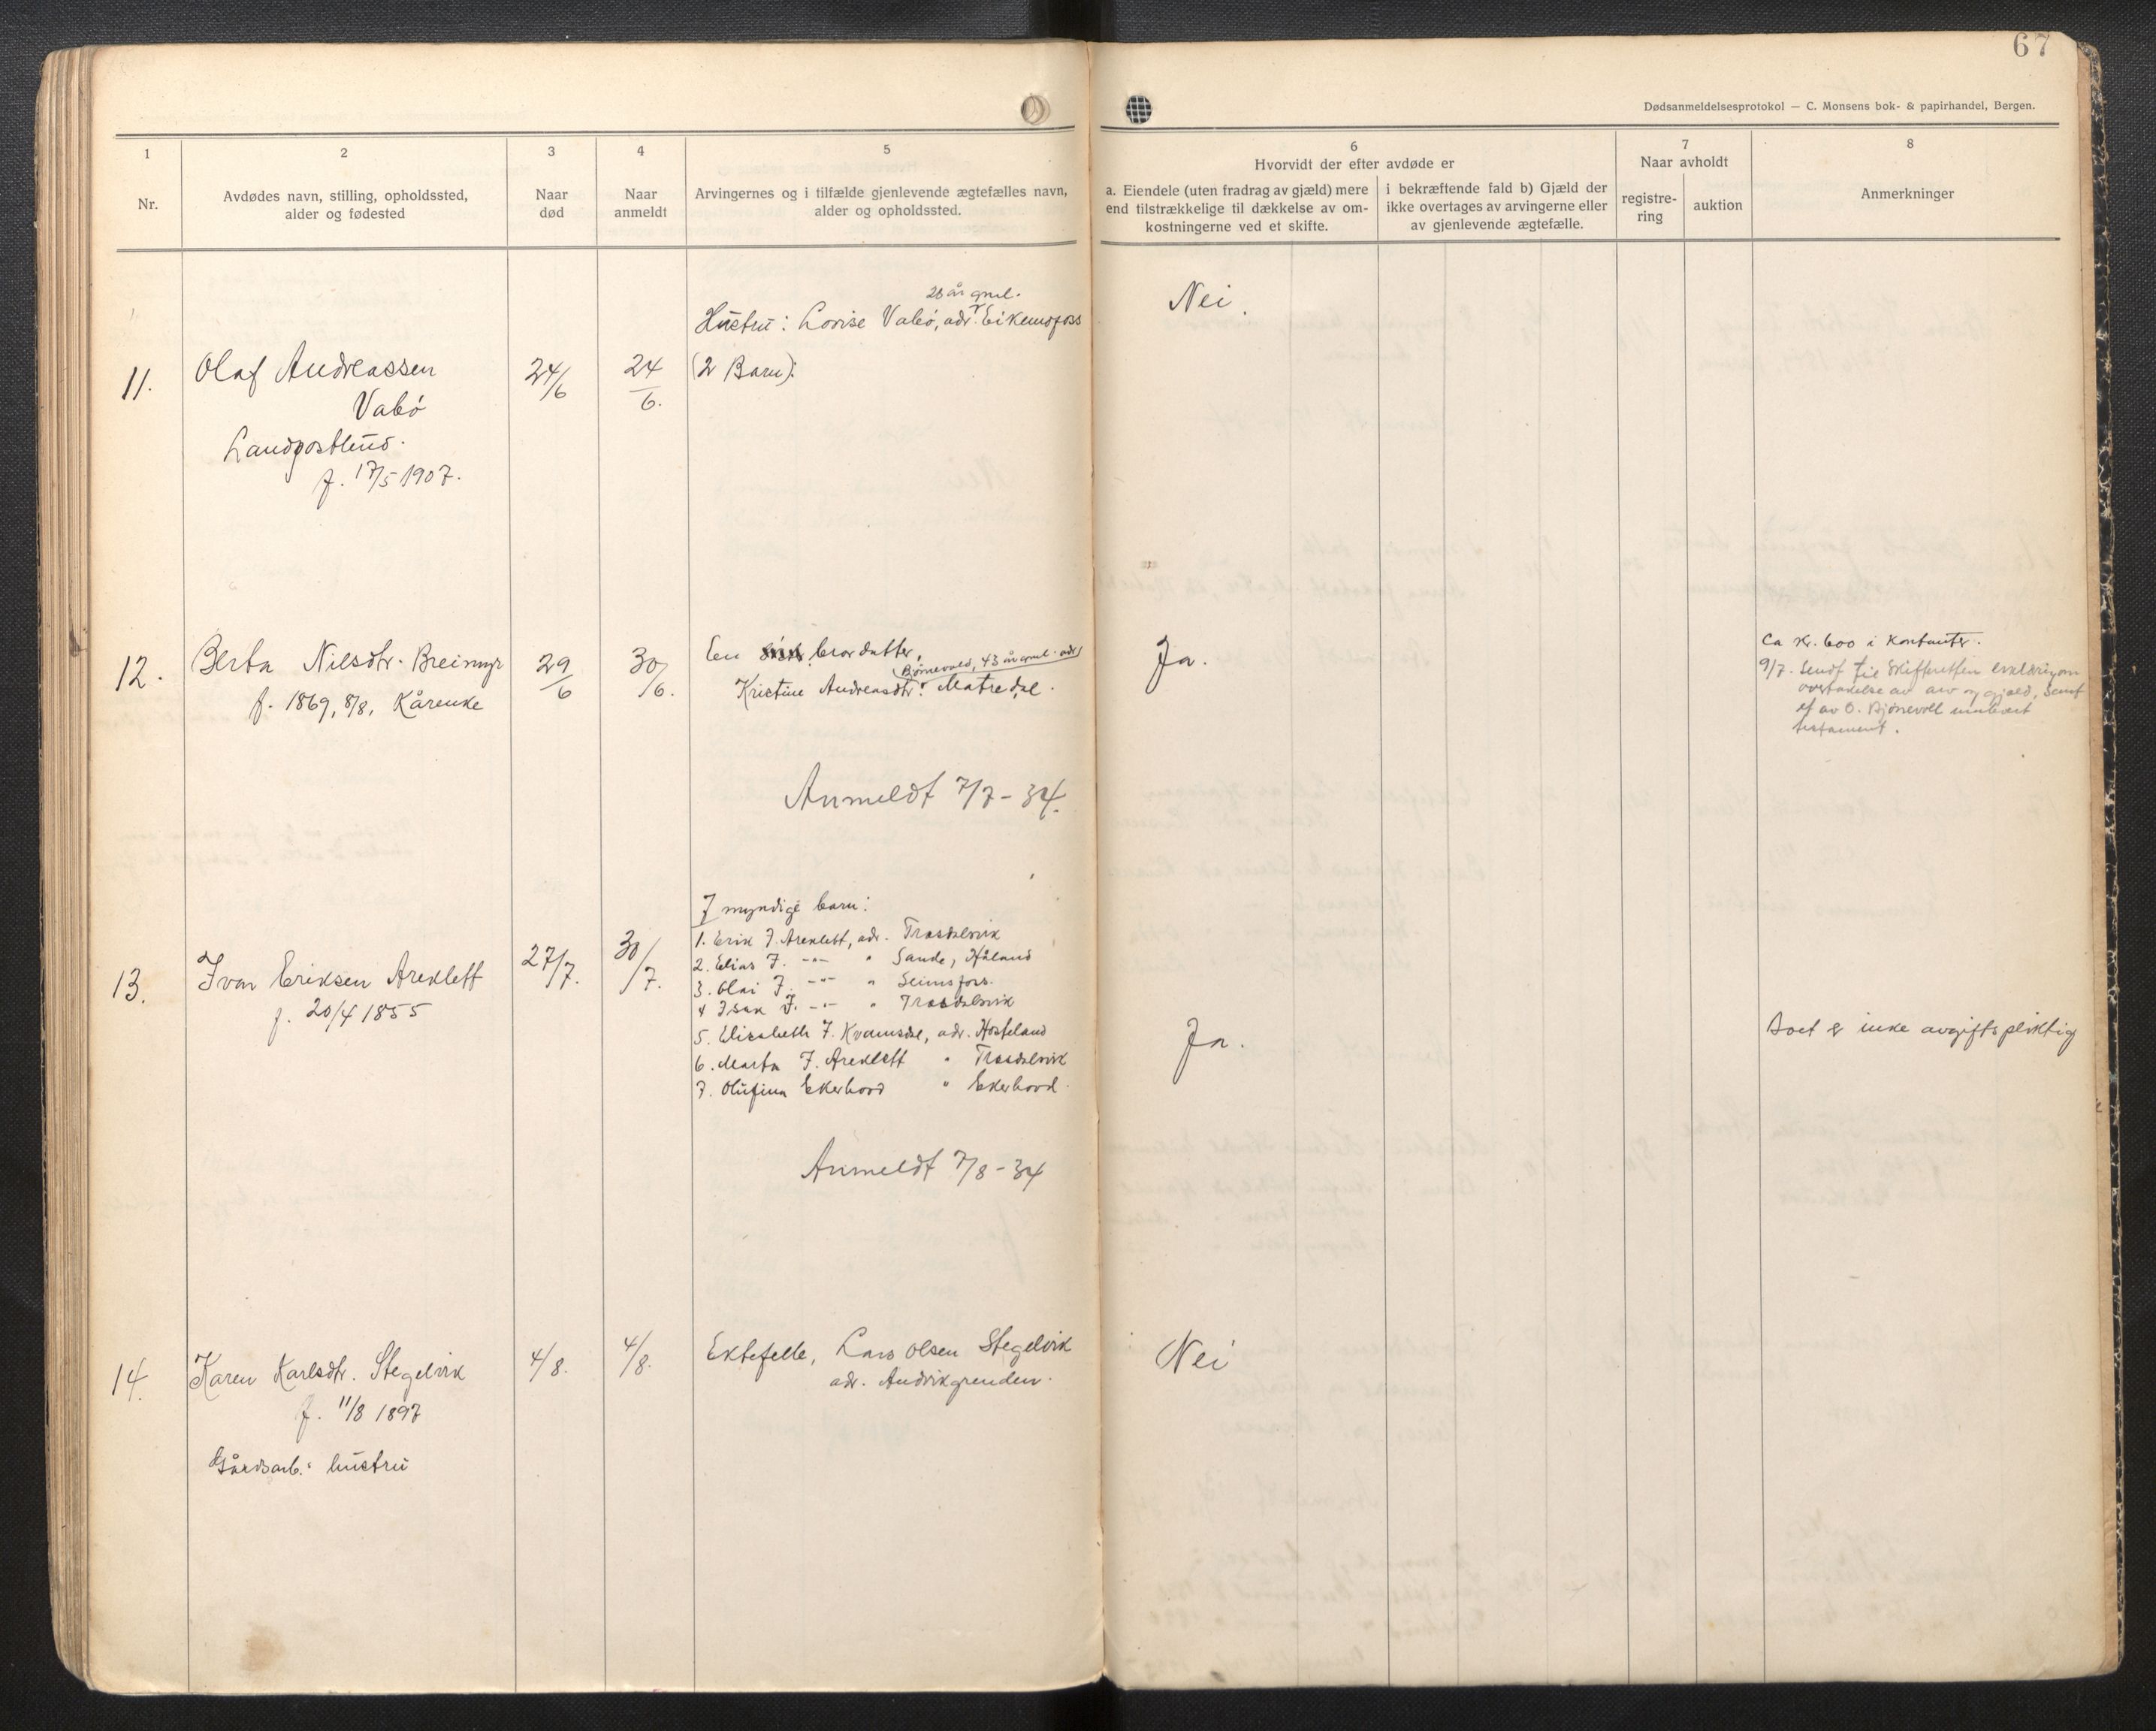 67
Dødsanmeldelsesprotokol — C. Monsens bok- & papirhandel, Bergen.
1
Nr.
2
Avdødes navn, stilling, opholdssted,
alder og fødested
3
Naar
død
4
Naar
anmeldt
5
Arvingernes og i tilfælde gjenlevende ægtefælles navn,
alder og opholdssted.
6
Hvorvidt der efter avdøde er
a. Eiendele (uten fradrag av gjæld) mere
end tilstrækkelige til dækkelse av om-
kostningerne ved et skifte.
i bekræftende fald b) Gjæld der
ikke overtages av arvingerne eller
av gjenlevende ægtefælle.
7
Naar avholdt
registre-
ring
auktion
8
Anmerkninger
11.
Olaf Andreassen
Vabö
Landpostbud.
f. 17/5 1907.
24/6
24/6.
28 år gml.
Hustru: Lovise Vabö, adr. Eikemofoss
(2 Barn):
Nei.
12.
Berta Nilsdtr. Breimyr
f. 1869, 8/8, Kårenke
29/6
30/6.
En brordatter,
Bjørnevold, 43 år gml. adr
Kristine Andreasdtr. Matredal.
Anmeldt 7/7-34.
Ja.
Ca kr. 600 i kontanter.
9/7. Sendt til Skifteretten erklæring om
overtakelse av arv og gjæld, samt
et av O. Bjørnevoll
testament.
13.
Ivar Eriksen Areklett
f. 20/4 1855
27/7.
30/7.
7 myndige barn:
1. Erik I. Areklett, adr. Trosdalsvik
2. Elias I. -"- " Sande, Håland
3. Olai I. -"- " Seimsfors.
4 Isak I. -"- " Trosdalsvik
5. Elisabeth I. Kvamsdal, adr. Hosteland
6. Marta I. Areklett " Trosdalsvik
7. Olufina Ekerhovd " Ekerhovd.
Anmeldt 7/8-34
Ja.
Boet er ikke avgiftspliktig
14.
Karen Karlsdtr. Stegelvik
f. 11/8 1897
Gårdsarb. hustru
4/8.
4/8.
Ektefelle, Lars Olsen Stegelvik
adr. Andvikgrenden.
Nei